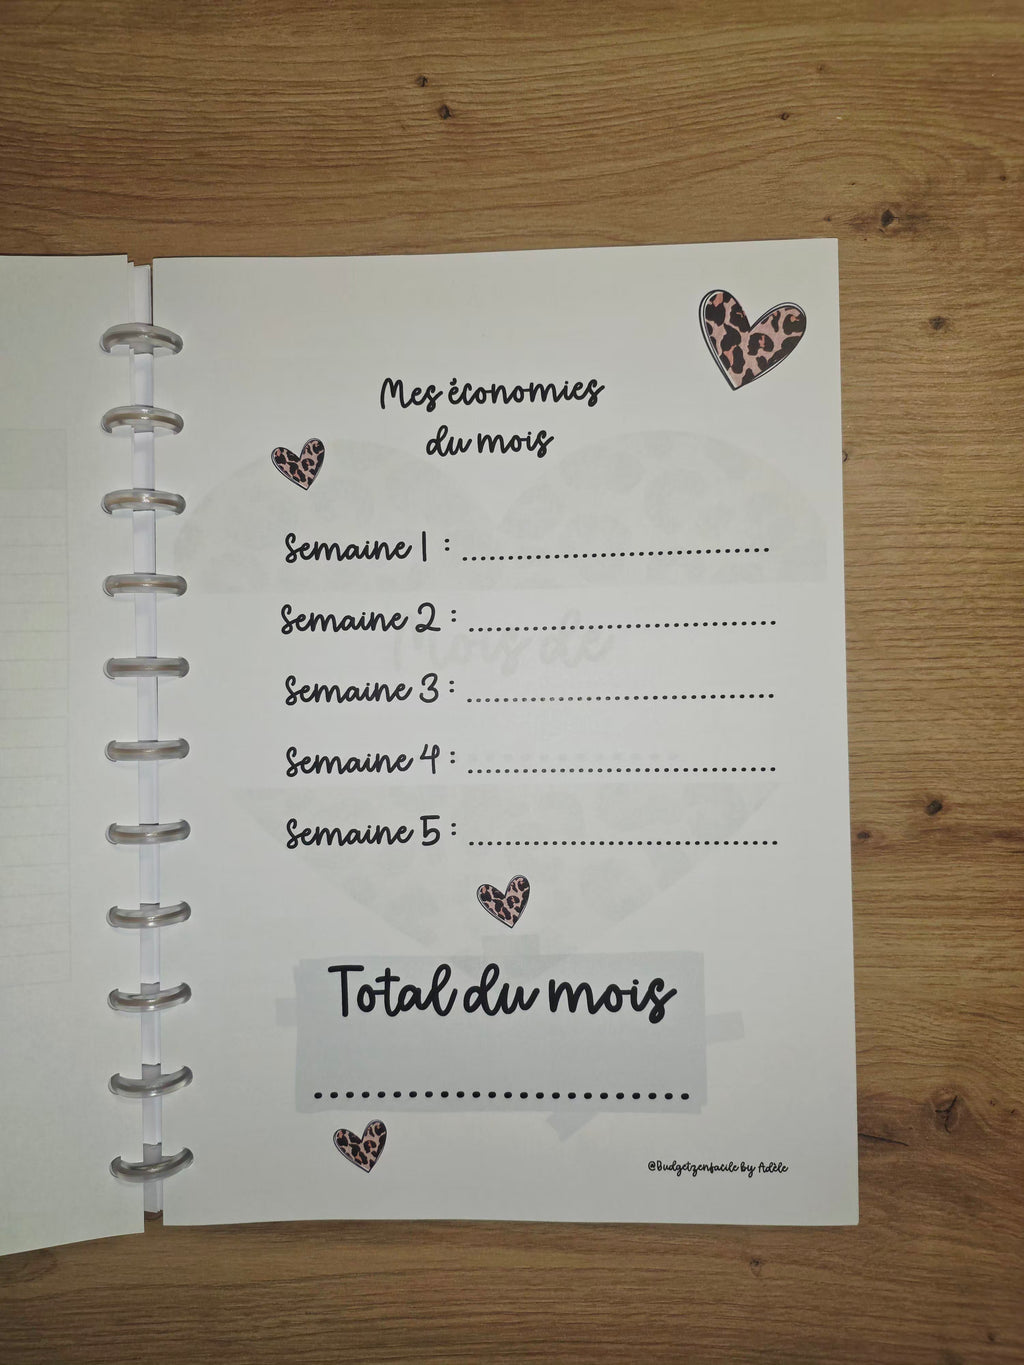 Mes économies
du mois
Semaine 1 : ........................................
Semaine 2 : ........................................
Semaine 3 : ........................................
Semaine 4 : ........................................
Semaine 5 : ........................................
Mois de
Total du mois
........................
@Budgetzenfacile by Adèle